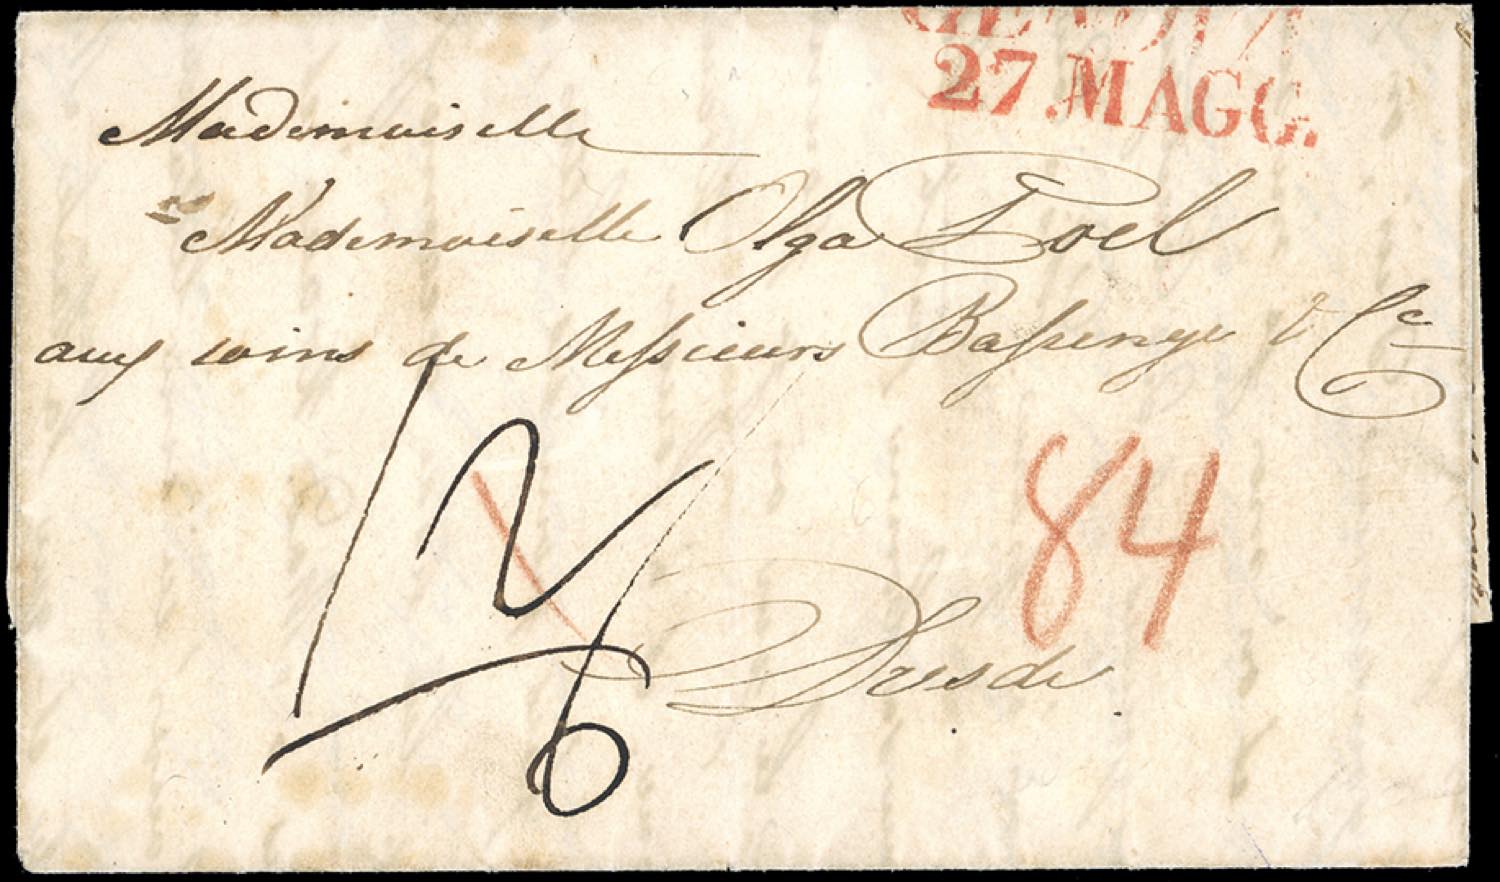 GENOVA
27. MAGG.
Mademoiselle
Mademoiselle Olga
aux soins de Messieurs Bassenge & Co
84
Dresde